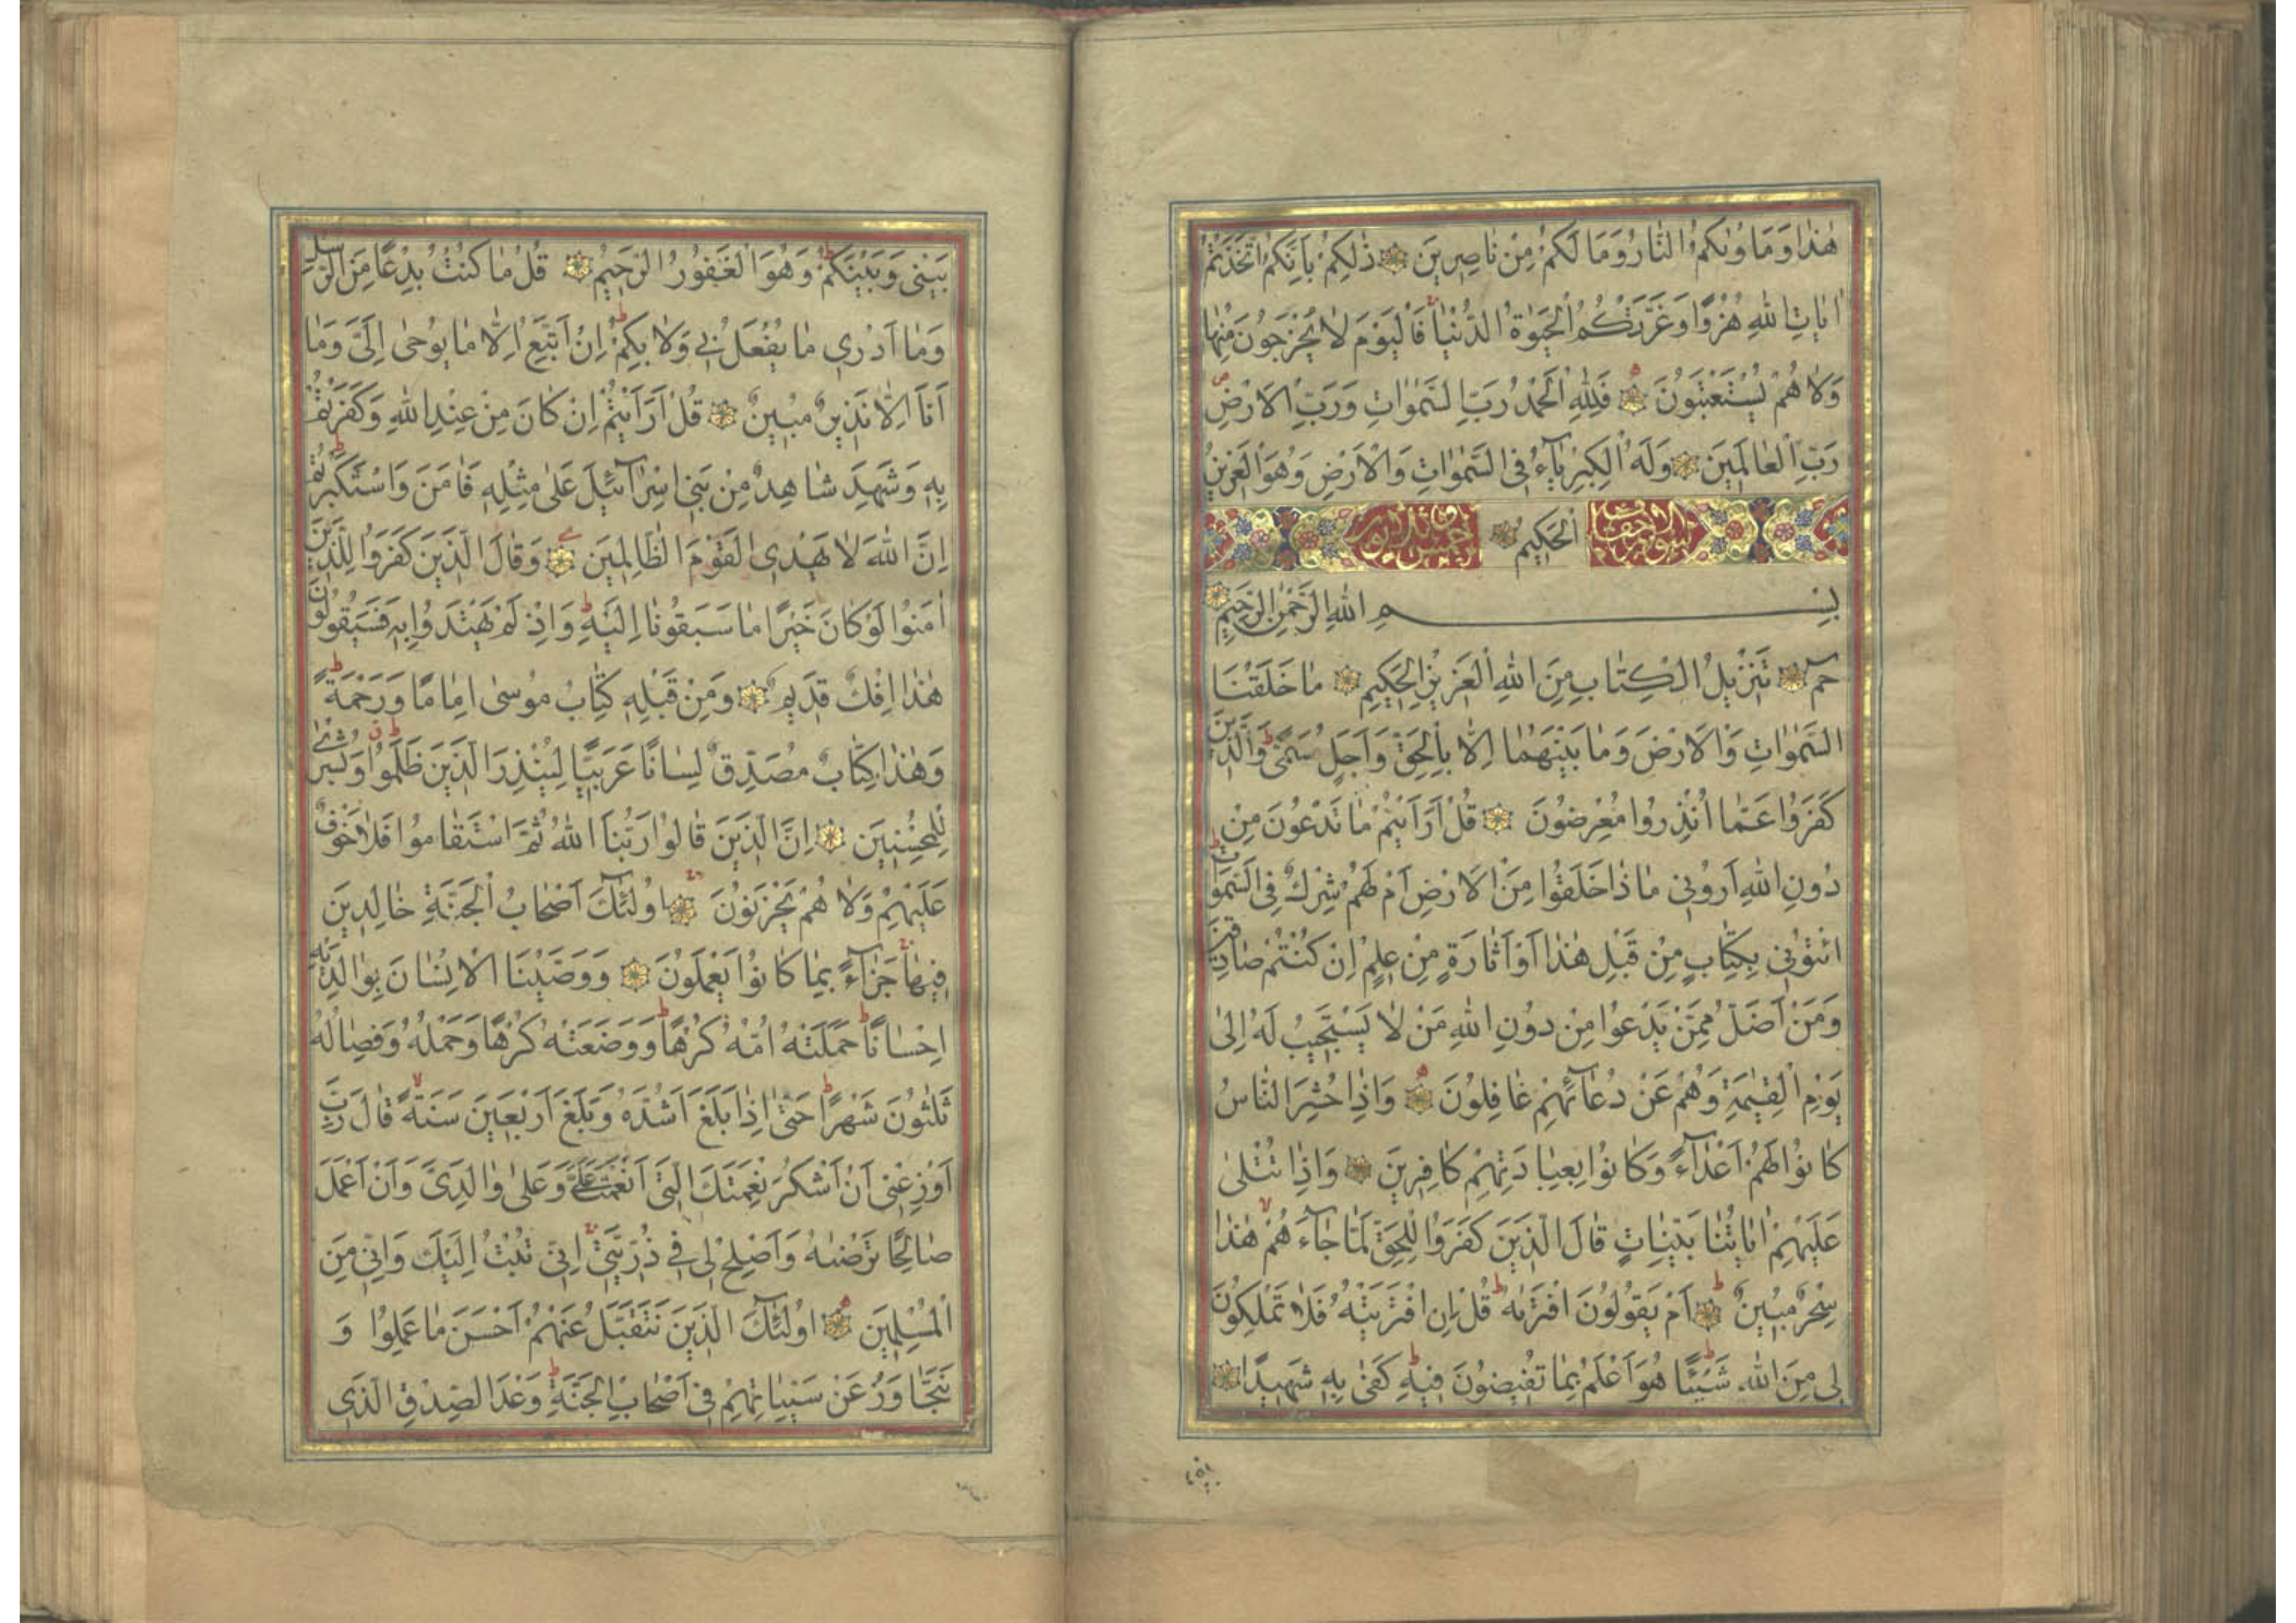 هٰذَا وَمَاْوٰىكُمُ النَّارُ وَمَا لَكُمْ مِنْ نَاصِرِينَ ذٰلِكُمْ بِاَنَّكُمُ اتَّخَذْتُمْ
اٰيَاتِ اللهِ هُزُوًا وَغَرَّتْكُمُ الْحَيٰوةُ الدُّنْيَا فَالْيَوْمَ لَا يُخْرَجُونَ مِنْهَا
وَلَا هُمْ يُسْتَعْتَبُونَ فَلِلّٰهِ الْحَمْدُ رَبِّ السَّمٰوَاتِ وَرَبِّ الْاَرْضِ
رَبِّ الْعَالَمِينَ وَلَهُ الْكِبْرِيَآءُ فِي السَّمٰوَاتِ وَالْاَرْضِ وَهُوَ الْعَزِيزُ
سورة الاحقاف الْحَكِيمُ
بِسْمِ اللهِ الرَّحْمٰنِ الرَّحِيمِ
حٰمٓ تَنْزِيلُ الْكِتَابِ مِنَ اللهِ الْعَزِيزِ الْحَكِيمِ مَا خَلَقْنَا
السَّمٰوَاتِ وَالْاَرْضَ وَمَا بَيْنَهُمَا اِلَّا بِالْحَقِّ وَاَجَلٍ مُسَمًّى وَالَّذِينَ
كَفَرُوا عَمَّا اُنْذِرُوا مُعْرِضُونَ قُلْ اَرَاَيْتُمْ مَا تَدْعُونَ مِنْ
دُونِ اللهِ اَرُونِي مَاذَا خَلَقُوا مِنَ الْاَرْضِ اَمْ لَهُمْ شِرْكٌ فِي السَّمٰوَاتِ
ائْتُونِي بِكِتَابٍ مِنْ قَبْلِ هٰذَا اَوْ اَثَارَةٍ مِنْ عِلْمٍ اِنْ كُنْتُمْ صَادِقِينَ
وَمَنْ اَضَلُّ مِمَّنْ يَدْعُوا مِنْ دُونِ اللهِ مَنْ لَا يَسْتَجِيبُ لَهُ اِلٰى
يَوْمِ الْقِيٰمَةِ وَهُمْ عَنْ دُعَآئِهِمْ غَافِلُونَ وَاِذَا حُشِرَ النَّاسُ
كَانُوا لَهُمْ اَعْدَآءً وَكَانُوا بِعِبَادَتِهِمْ كَافِرِينَ وَاِذَا تُتْلٰى
عَلَيْهِمْ اٰيَاتُنَا بَيِّنَاتٍ قَالَ الَّذِينَ كَفَرُوا لِلْحَقِّ لَمَّا جَآءَهُمْ هٰذَا
سِحْرٌ مُبِينٌ اَمْ يَقُولُونَ افْتَرٰيهُ قُلْ اِنِ افْتَرَيْتُهُ فَلَا تَمْلِكُونَ
لِي مِنَ اللهِ شَيْئًا هُوَ اَعْلَمُ بِمَا تُفِيضُونَ فِيهِ كَفٰى بِهِ شَهِيدًا
بَيْنِي وَبَيْنَكُمْ وَهُوَ الْغَفُورُ الرَّحِيمُ قُلْ مَا كُنْتُ بِدْعًا مِنَ الرُّسُلِ
وَمَا اَدْرِي مَا يُفْعَلُ بِي وَلَا بِكُمْ اِنْ اَتَّبِعُ اِلَّا مَا يُوحٰى اِلَيَّ وَمَا
اَنَا اِلَّا نَذِيرٌ مُبِينٌ قُلْ اَرَاَيْتُمْ اِنْ كَانَ مِنْ عِنْدِ اللهِ وَكَفَرْتُمْ
بِهِ وَشَهِدَ شَاهِدٌ مِنْ بَنِي اِسْرَآئِيلَ عَلٰى مِثْلِهِ فَاٰمَنَ وَاسْتَكْبَرْتُمْ
اِنَّ اللهَ لَا يَهْدِي الْقَوْمَ الظَّالِمِينَ وَقَالَ الَّذِينَ كَفَرُوا لِلَّذِينَ
اٰمَنُوا لَوْ كَانَ خَيْرًا مَا سَبَقُونَا اِلَيْهِ وَاِذْ لَمْ يَهْتَدُوا بِهِ فَسَيَقُولُونَ
هٰذَا اِفْكٌ قَدِيمٌ وَمِنْ قَبْلِهِ كِتَابُ مُوسٰى اِمَامًا وَرَحْمَةً
وَهٰذَا كِتَابٌ مُصَدِّقٌ لِسَانًا عَرَبِيًّا لِيُنْذِرَ الَّذِينَ ظَلَمُوا وَبُشْرٰى
لِلْمُحْسِنِينَ اِنَّ الَّذِينَ قَالُوا رَبُّنَا اللهُ ثُمَّ اسْتَقَامُوا فَلَا خَوْفٌ
عَلَيْهِمْ وَلَا هُمْ يَحْزَنُونَ اُولٰئِكَ اَصْحَابُ الْجَنَّةِ خَالِدِينَ
فِيهَا جَزَآءً بِمَا كَانُوا يَعْمَلُونَ وَوَصَّيْنَا الْاِنْسَانَ بِوَالِدَيْهِ
اِحْسَانًا حَمَلَتْهُ اُمُّهُ كُرْهًا وَوَضَعَتْهُ كُرْهًا وَحَمْلُهُ وَفِصَالُهُ
ثَلٰثُونَ شَهْرًا حَتّٰى اِذَا بَلَغَ اَشُدَّهُ وَبَلَغَ اَرْبَعِينَ سَنَةً قَالَ رَبِّ
اَوْزِعْنِي اَنْ اَشْكُرَ نِعْمَتَكَ الَّتِي اَنْعَمْتَ عَلَيَّ وَعَلٰى وَالِدَيَّ وَاَنْ اَعْمَلَ
صَالِحًا تَرْضٰيهُ وَاَصْلِحْ لِي فِي ذُرِّيَّتِي اِنِّي تُبْتُ اِلَيْكَ وَاِنِّي مِنَ
الْمُسْلِمِينَ اُولٰئِكَ الَّذِينَ نَتَقَبَّلُ عَنْهُمْ اَحْسَنَ مَا عَمِلُوا وَ
نَتَجَاوَزُ عَنْ سَيِّئَاتِهِمْ فِي اَصْحَابِ الْجَنَّةِ وَعْدَ الصِّدْقِ الَّذِي